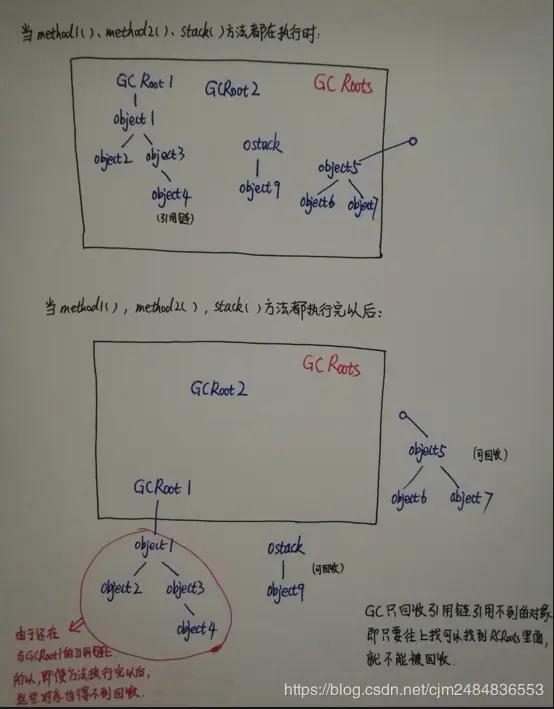 当method1()、method2()、stack()方法都在执行时:
GCRoot1
GCRoot2
GC Roots
object1
object2 object3
object4
(引用链)
ostack
object9
object5
object6 object7
当method1(), method2(), stack()方法都执行完以后:
GC Roots
GCRoot2
GCRoot1
object5
(可回收)
object6 object7
object1
object2 object3
object4
ostack
(可回收)
object9
由于还在
与GCRoot1的引用链上
所以,即使方法执行完以后,
这些对象也得不到回收.
GC只回收引用链引用不到的对象
即只要往上找可以找到RCRoots里面,
就不能被回收.
https://blog.csdn.net/cjm2484836553